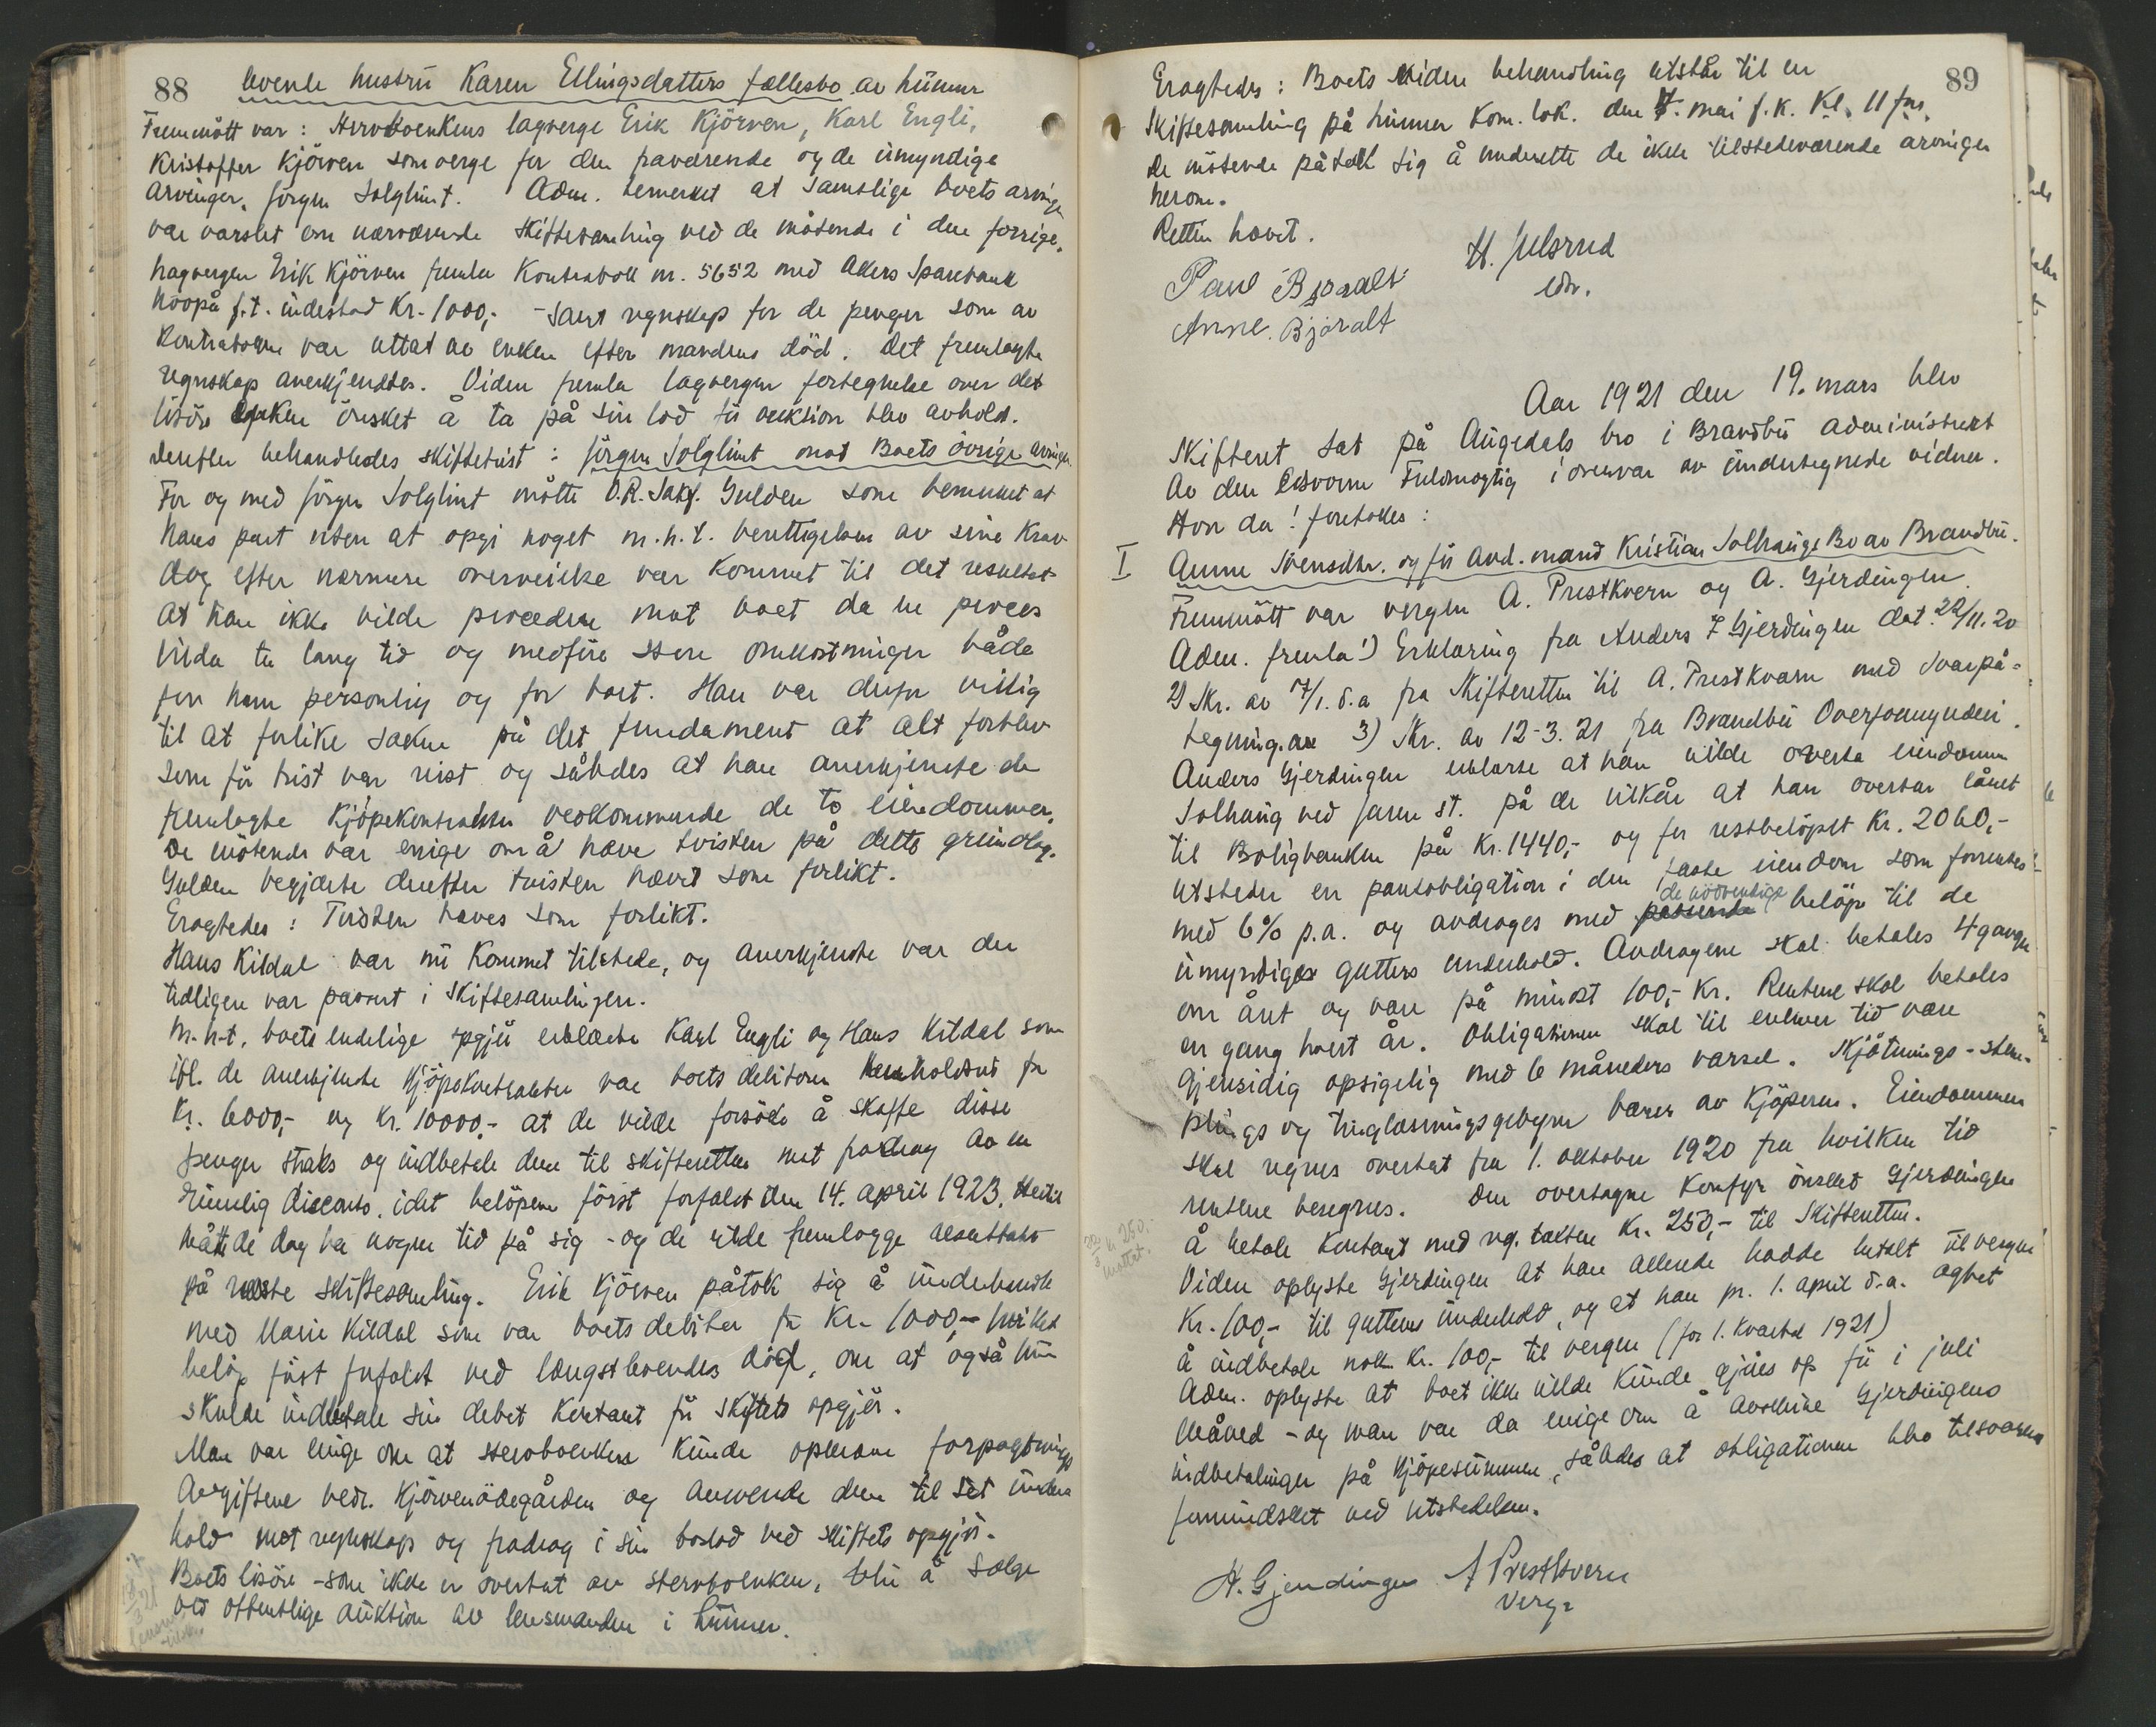 88
levende hustru Karen Ellingsdatters fællesbo av Lunner
Fremmött var: Stervboenkens lagverge Erik Kjörven, Karl Engli,
Kristoffer Kjörven som verge for den fraværende og de umyndige
arvinger, Jörgen Solglimt. Adm. bemerket at samtlige boets arvinger
var varslet om nærværende skiftesamling ved de mötende i den forrige.
Lagvergen Erik Kjörven fremla Kontrabok nr. 5652 med Akers Sparebank
hvorpå f.t. indestod Kr. 1000,- samt regnskap for de penger som av
Kontraboken var uttat av enken efter mandens död. Det fremlagte
regnskap anerkjendtes. Viden fremla lagvergen fortegnelse over det
lösöre enken önsket å ta på sin lod för auktion blev avholdt.
Derefter behandledes skiftetvist: Jörgen Solglimt mot Boets övrige arvinger.
For og med Jörgen Solglimt mötte O.R.Sakf. Gulden som bemerket at
hans part uten at opgi noget m.h.t. berettigelsen av sine Krav
dog efter nærmere overveielse var kommet til det resultat
at han ikke vilde procedere mot boet da en proces
vilde ta lang tid og medföre store omkostninger både
for ham personlig og for boet. Han var derfor villig
til at forlike saken på det fundament at alt forblev
som för tvist var reist og således at han anerkjendte de
fremlagte Kjöpekontrakter vedkommende de to eiendommer.
De mötende var enige om å hæve tvisten på dette grundlag.
Gulden begjærte derefter tvisten hævet som forlikt.
Eragtedes: Tvisten hæves som forlikt.
Hans Kildal var nu kommet tilstede, og anerkjendte var der
tidligere var passert i skiftesamlingen.
M.h.t. boets endelige opgjör erklærte Karl Engli og Hans Kildal som
ifl. de anerkjendte Kjöpekontrakter var boets debitorer henholdsvis for
Kr. 6000,- og Kr. 10000,- at de vilde forsöke å skaffe disse
penger straks og indbetale dem til skifteretten mot fradrag av en
rimelig disconto, idet belöpene först forfaldt den 14. april 1923. Hertil
måtte de dog ha nogen tid på sig - og de vilde fremlægge resultatet
på næste skiftesamling. Erik Kjörven påtok sig å underhandle
med Marie Kildal som var boets debitor for Kr. 1000,- hvilket
belöp först forfaldt ved længstlevendes död, om at også hun
skulde indbetale sin debet kontant för skiftets opgjör.
Man var enige om at stervboenken kunde opkræve forpagtnings
avgiftene vedr. Kjörvenödegården og anvende dem til sit under
hold mot regnskap og fradrag i sin boslod ved skiftets opgjör.
Boets lösöre - som ikke er overtat av stervboenken, blir å sælge
ved offentlige auktion av lensmanden i Lunner.
89
Eragtedes: Boets viden behandling utstår til en
skiftesamling på Lunner Kom. lok. den 7. mai f.k. Kl. 11 fm.
De mötende påtok sig å underrette de ikke tilstedeværende arvinger
herom.
Retten hævet.
H. Julsrud
edsv.
Paul Björalt
Anne. Björalt
Aar 1921 den 19. mars blev
Skifteret sat på Augedals bro i Brandbu administrert
av den edsvorne Fuldmægtig i overvær av undertegnede vidner.
Hvor da! foretokes:
I Anne Svensdtr. og för avd. mand Kristian Solhaugs Bo av Brandbu.
Fremmött var vergen A. Prestkvern og A. Gjerdingen
Adm. fremla 1) Erklæring fra Anders J Gjerdingen dat. 22/11.20
2) Skr. av 17/1. d.a fra Skifteretten til A. Prestkvern med svarpå-
tegning. 3) Skr. av 12-3.21 fra Brandbu Overformynderi.
Anders Gjerdingen erklærte at han vilde overta eiendommen
Solhaug ved Jaren st. på de vilkår at han overtar lånet
til Boligbanken på Kr. 1440,- og for restbelöpet Kr. 2060,-
utsteder en pantobligation i den faste eiendom som forrentes
med 6% p.a. og avdrages med de nödvendige belöp til de
umyndige gutters underhold. Avdragene skal betales 4 ganger
om året og være på mindst 100,- Kr. Rentene skal betales
en gang hvert år. Obligationen skal til enhver tid være
gjensidig opsigelig med 6 måneders varsel. Skjötnings- stem-
plings og tinglæsningsgebyrer bæres av Kjöperen. Eiendommen
skal regnes overtat fra 1. oktober 1920 fra hvilken tid
rentene beregnes. Den overtagne Komfyr önsket Gjerdingen
å betale Kontant med vg. taksten Kr. 250,- til Skifteretten.
Viden oplyste Gjerdingen at han allerede hadde betalt til vergen
Kr. 100,- til guttenes underhold, og at han pr. 1. april d.a. agtet
å indbetale nok Kr. 100,- til vergen (for 1. Kvartal 1921)
Adm. oplyste at boet ikke vilde kunde gjöres op för i juli
Måned - og man var da enige om å avskrive Gjerdingens
indbetalinger på Kjöpesummen, således at obligationen blev tilsvarende
formindsket ved utstedelsen.
A. Gjerdingen A Prestkvern
Verge